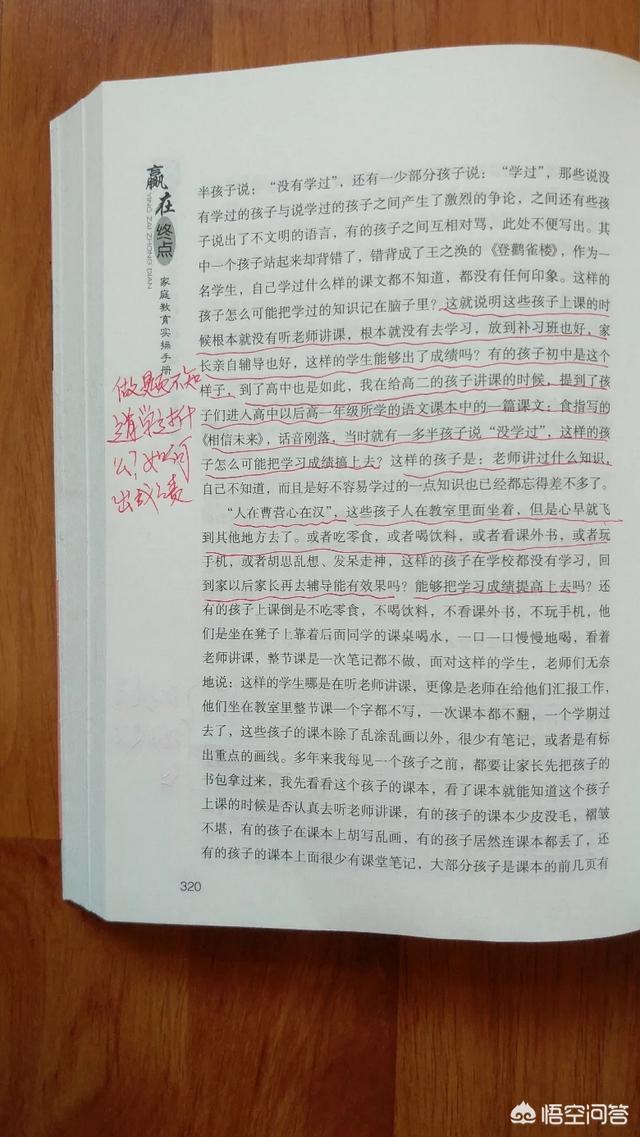 赢在终点
YING ZAI ZHONG DIAN
家庭教育实操手册
半孩子说：“没有学过”，还有一少部分孩子说：“学过”，那些说没
有学过的孩子与说学过的孩子之间产生了激烈的争论，之间还有些孩
子说出了不文明的语言，有的孩子之间互相对骂，此处不便写出。其
中一个孩子站起来却背错了，错背成了王之涣的《登鹳雀楼》，作为一
名学生，自己学过什么样的课文都不知道，都没有任何印象。这样的
孩子怎么可能把学过的知识记在脑子里？这就说明这些孩子上课的时
候根本就没有听老师讲课，根本就没有去学习，放到补习班也好，家
长亲自辅导也好，这样的学生能够出了成绩吗？有的孩子初中是这个
样子，到了高中也是如此，我在给高二的孩子讲课的时候，提到了孩
子们进入高中以后高一年级所学的语文课本中的一篇课文：食指写的
《相信未来》，话音刚落，当时就有一多半孩子说“没学过”，这样的孩
子怎么可能把学习成绩搞上去？这样的孩子是：老师讲过什么知识，
自己不知道，而且是好不容易学过的一点知识也已经都忘得差不多了。
“人在曹营心在汉”，这些孩子人在教室里面坐着，但是心早就飞
到其他地方去了。或者吃零食，或者喝饮料，或者看课外书，或者玩
手机，或者胡思乱想、发呆走神，这样的孩子在学校都没有学习，回
到家以后家长再去辅导能有效果吗？能够把学习成绩提高上去吗？还
有的孩子上课倒是不吃零食，不喝饮料，不看课外书，不玩手机，他
们是坐在凳子上靠着后面同学的课桌喝水，一口一口慢慢地喝，看着
老师讲课，整节课是一次笔记都不做，面对这样的学生，老师们无奈
地说：这样的学生哪是在听老师讲课，更像是老师在给他们汇报工作，
他们坐在教室里整节课一个字都不写，一次课本都不翻，一个学期过
去了，这些孩子的课本除了乱涂乱画以外，很少有笔记，或者是有标
出重点的画线。多年来我每见一个孩子之前，都要让家长先把孩子的
书包拿过来，我先看看这个孩子的课本，看了课本就能知道这个孩子
上课的时候是否认真去听老师讲课，有的孩子的课本少皮没毛，褶皱
不堪，有的孩子在课本上胡写乱画，有的孩子居然连课本都丢了，还
有的孩子的课本上面很少有课堂笔记，大部分孩子是课本的前几页有
做题不知
么？如何
出成绩
320
悟空问答